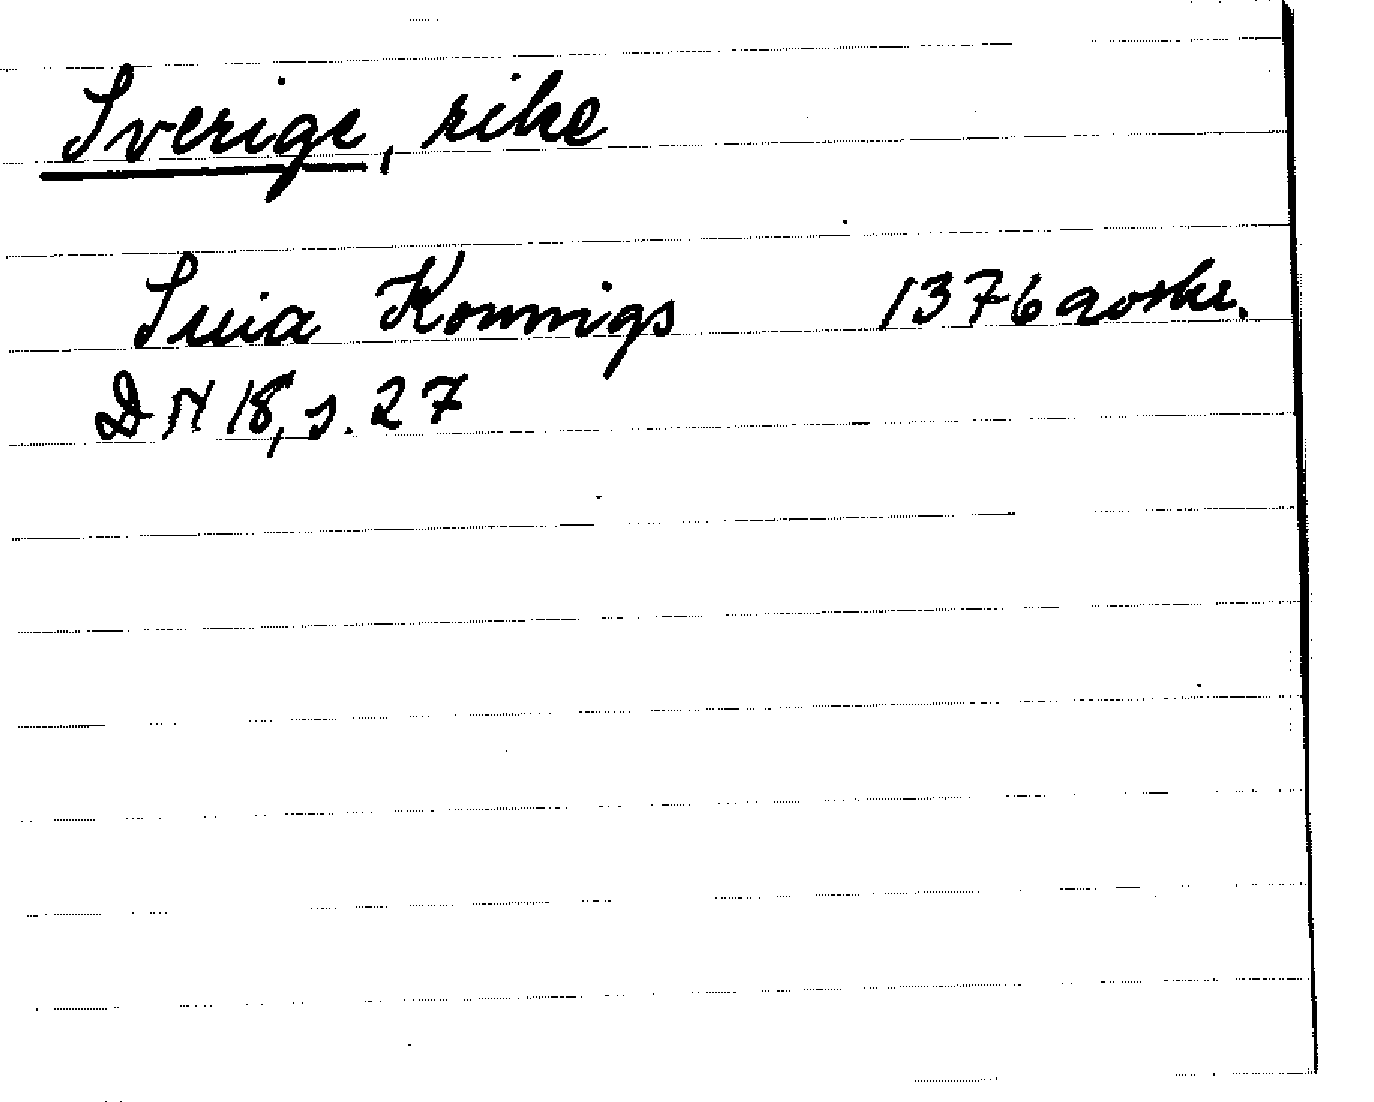 Sverige, rike
Suia Konungs 1376 avskr.
DN 18, s. 27